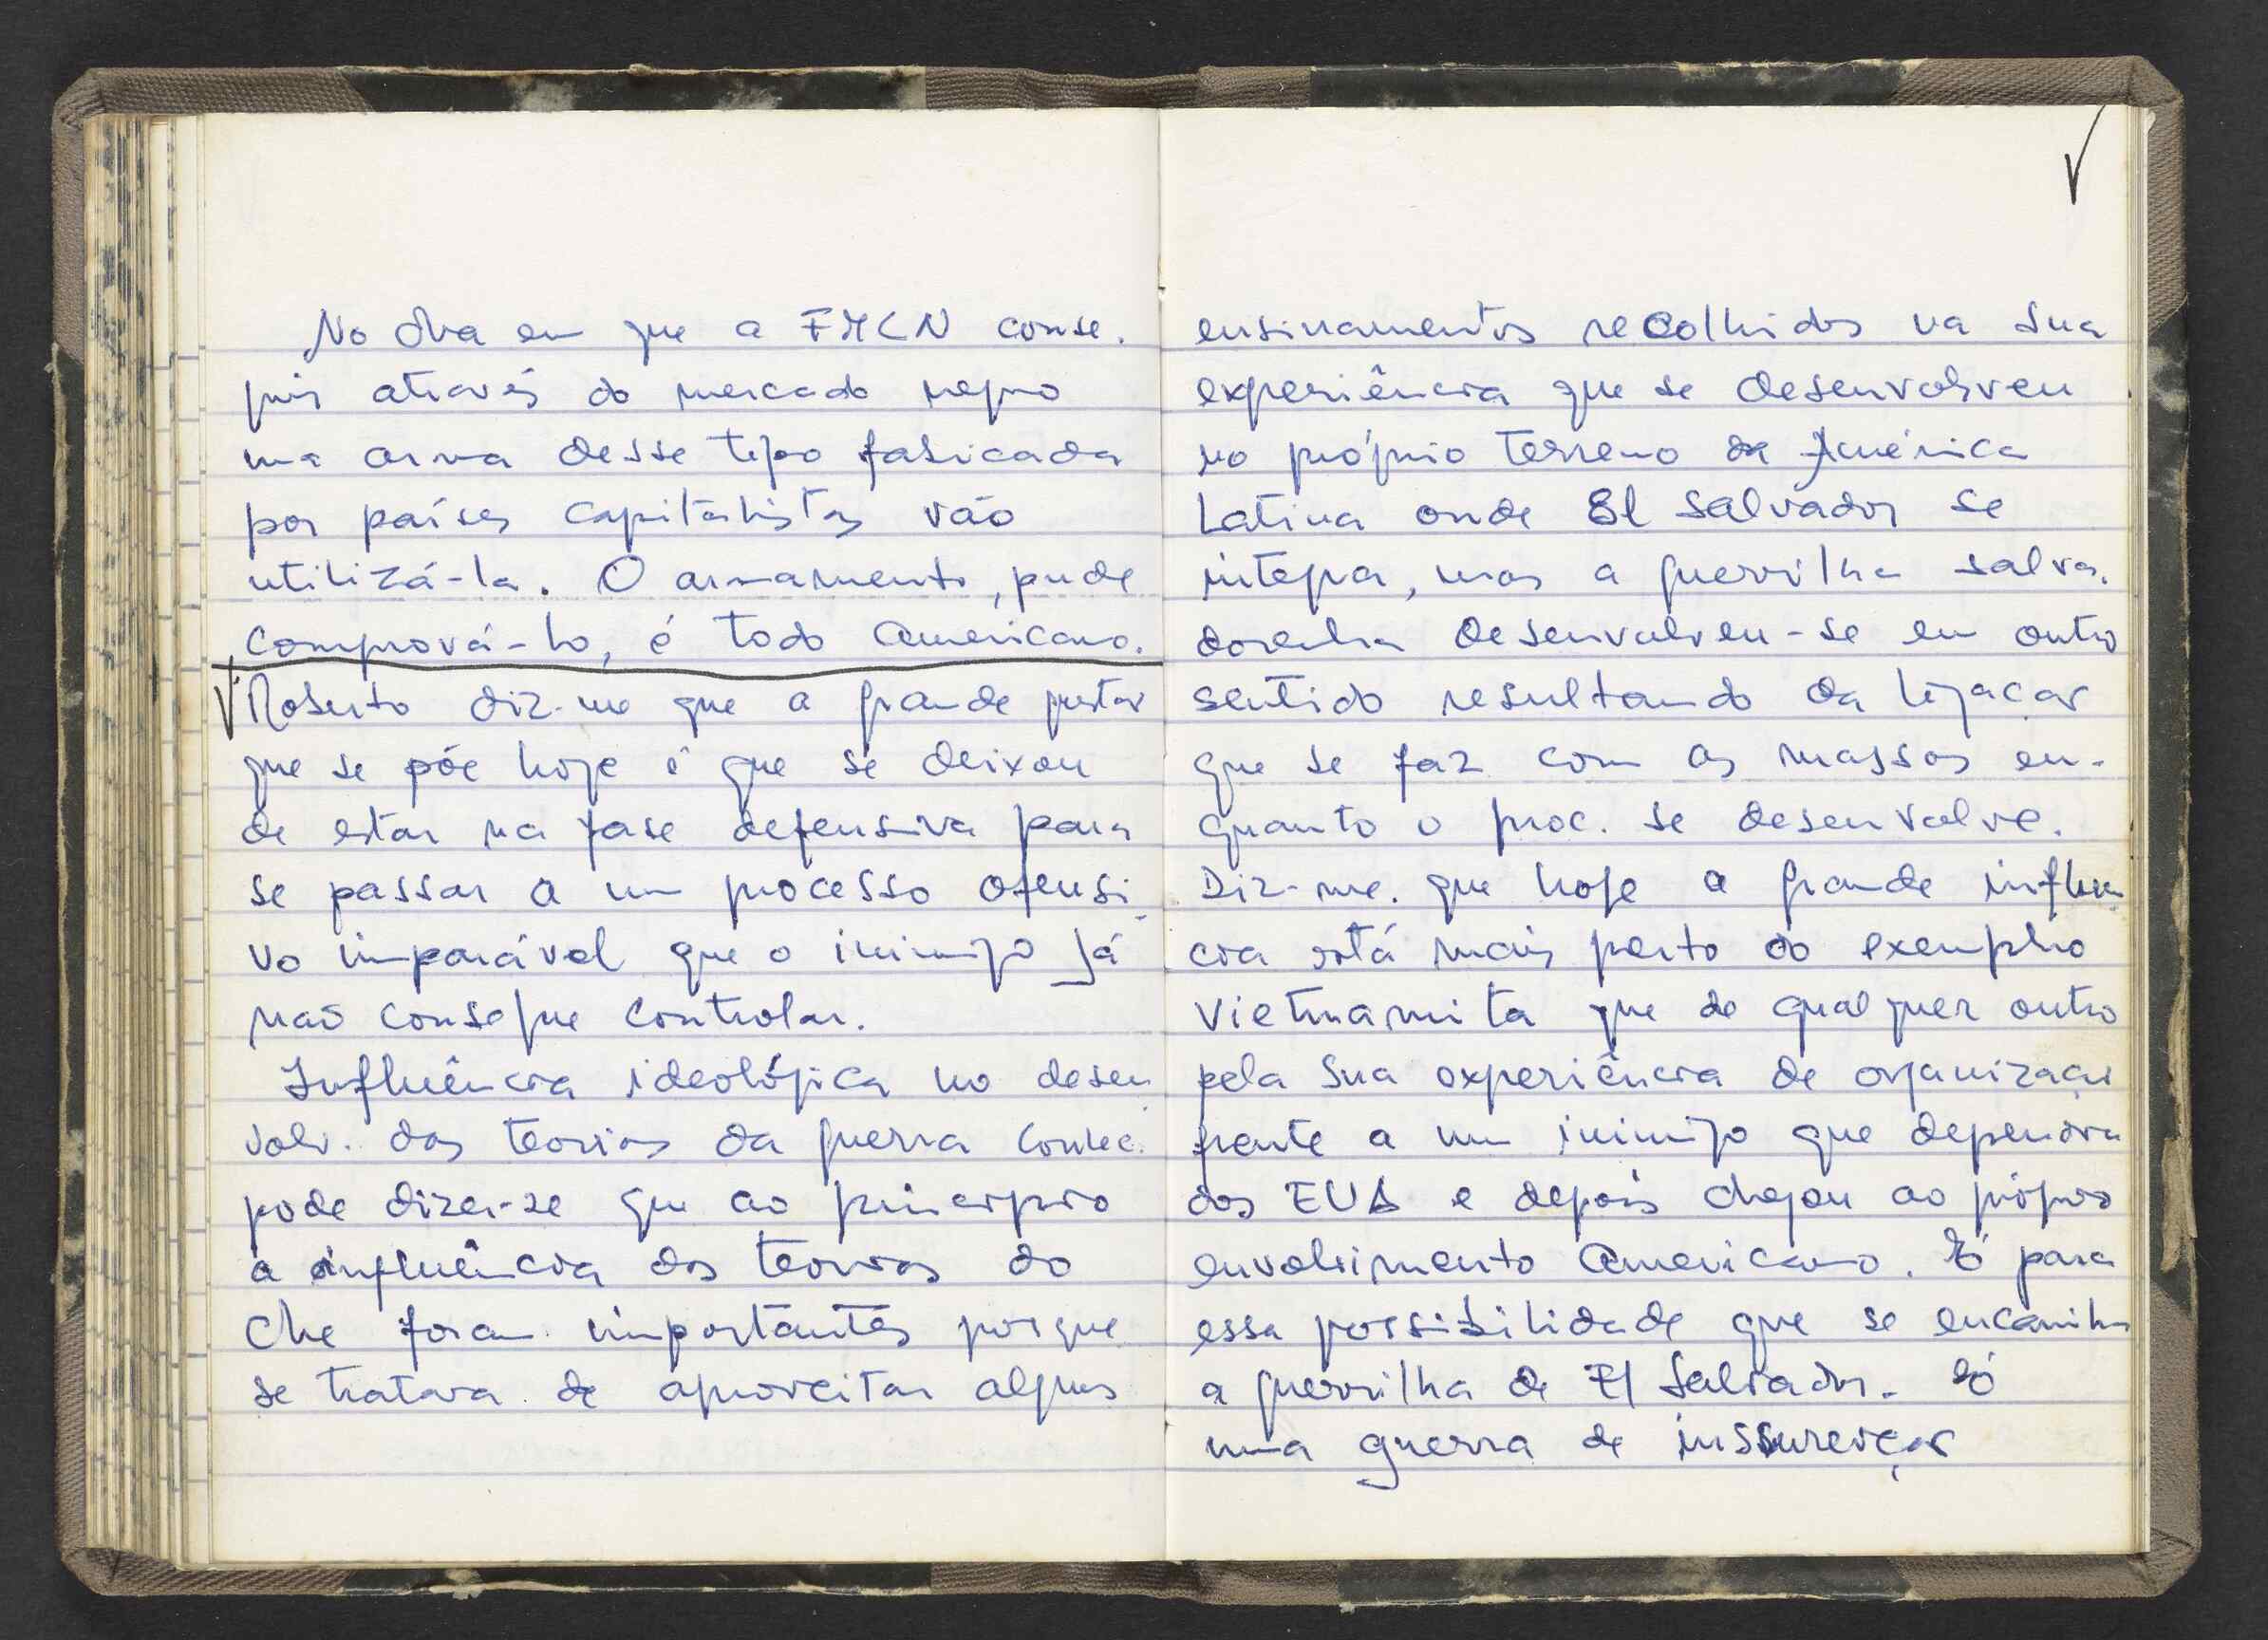 No dia em que a FMLN conse-
guir através do mercado negro
uma arma desse tipo fabricada
por países capitalistas vão
utilizá-la. O armamento, pude
comprová-lo, é todo americano.
Roberto diz-me que a grande questão
que se põe hoje é que se deixou
de estar na fase defensiva para
se passar a um processo ofensi-
vo imparável que o inimigo já
não consegue controlar.
Influência ideológica no desen
volv. das teorias da guerra
pode dizer-se que ao princípio
a influência das teorias do
Che foram importantes porque
se tratava de aproveitar alguns
ensinamentos recolhidos na sua
experiência que se desenvolveu
no próprio terreno da América
Latina onde El Salvador se
integra, mas a guerrilha salva-
dorenha desenvolveu-se em outro
sentido resultando da ligação
que se faz com as massas en-
quanto o proc. se desenvolve.
Diz-me. que hoje a grande influen
cia está mais perto do exemplo
Vietnamita que de qualquer outro
pela sua experiência de organização
frente a um inimigo que dependia
dos EUA e depois chegou ao próprio
envolvimento americano. É para
essa possibilidade que se encaminha
a guerrilha de El Salvador. É
uma guerra de inssureição